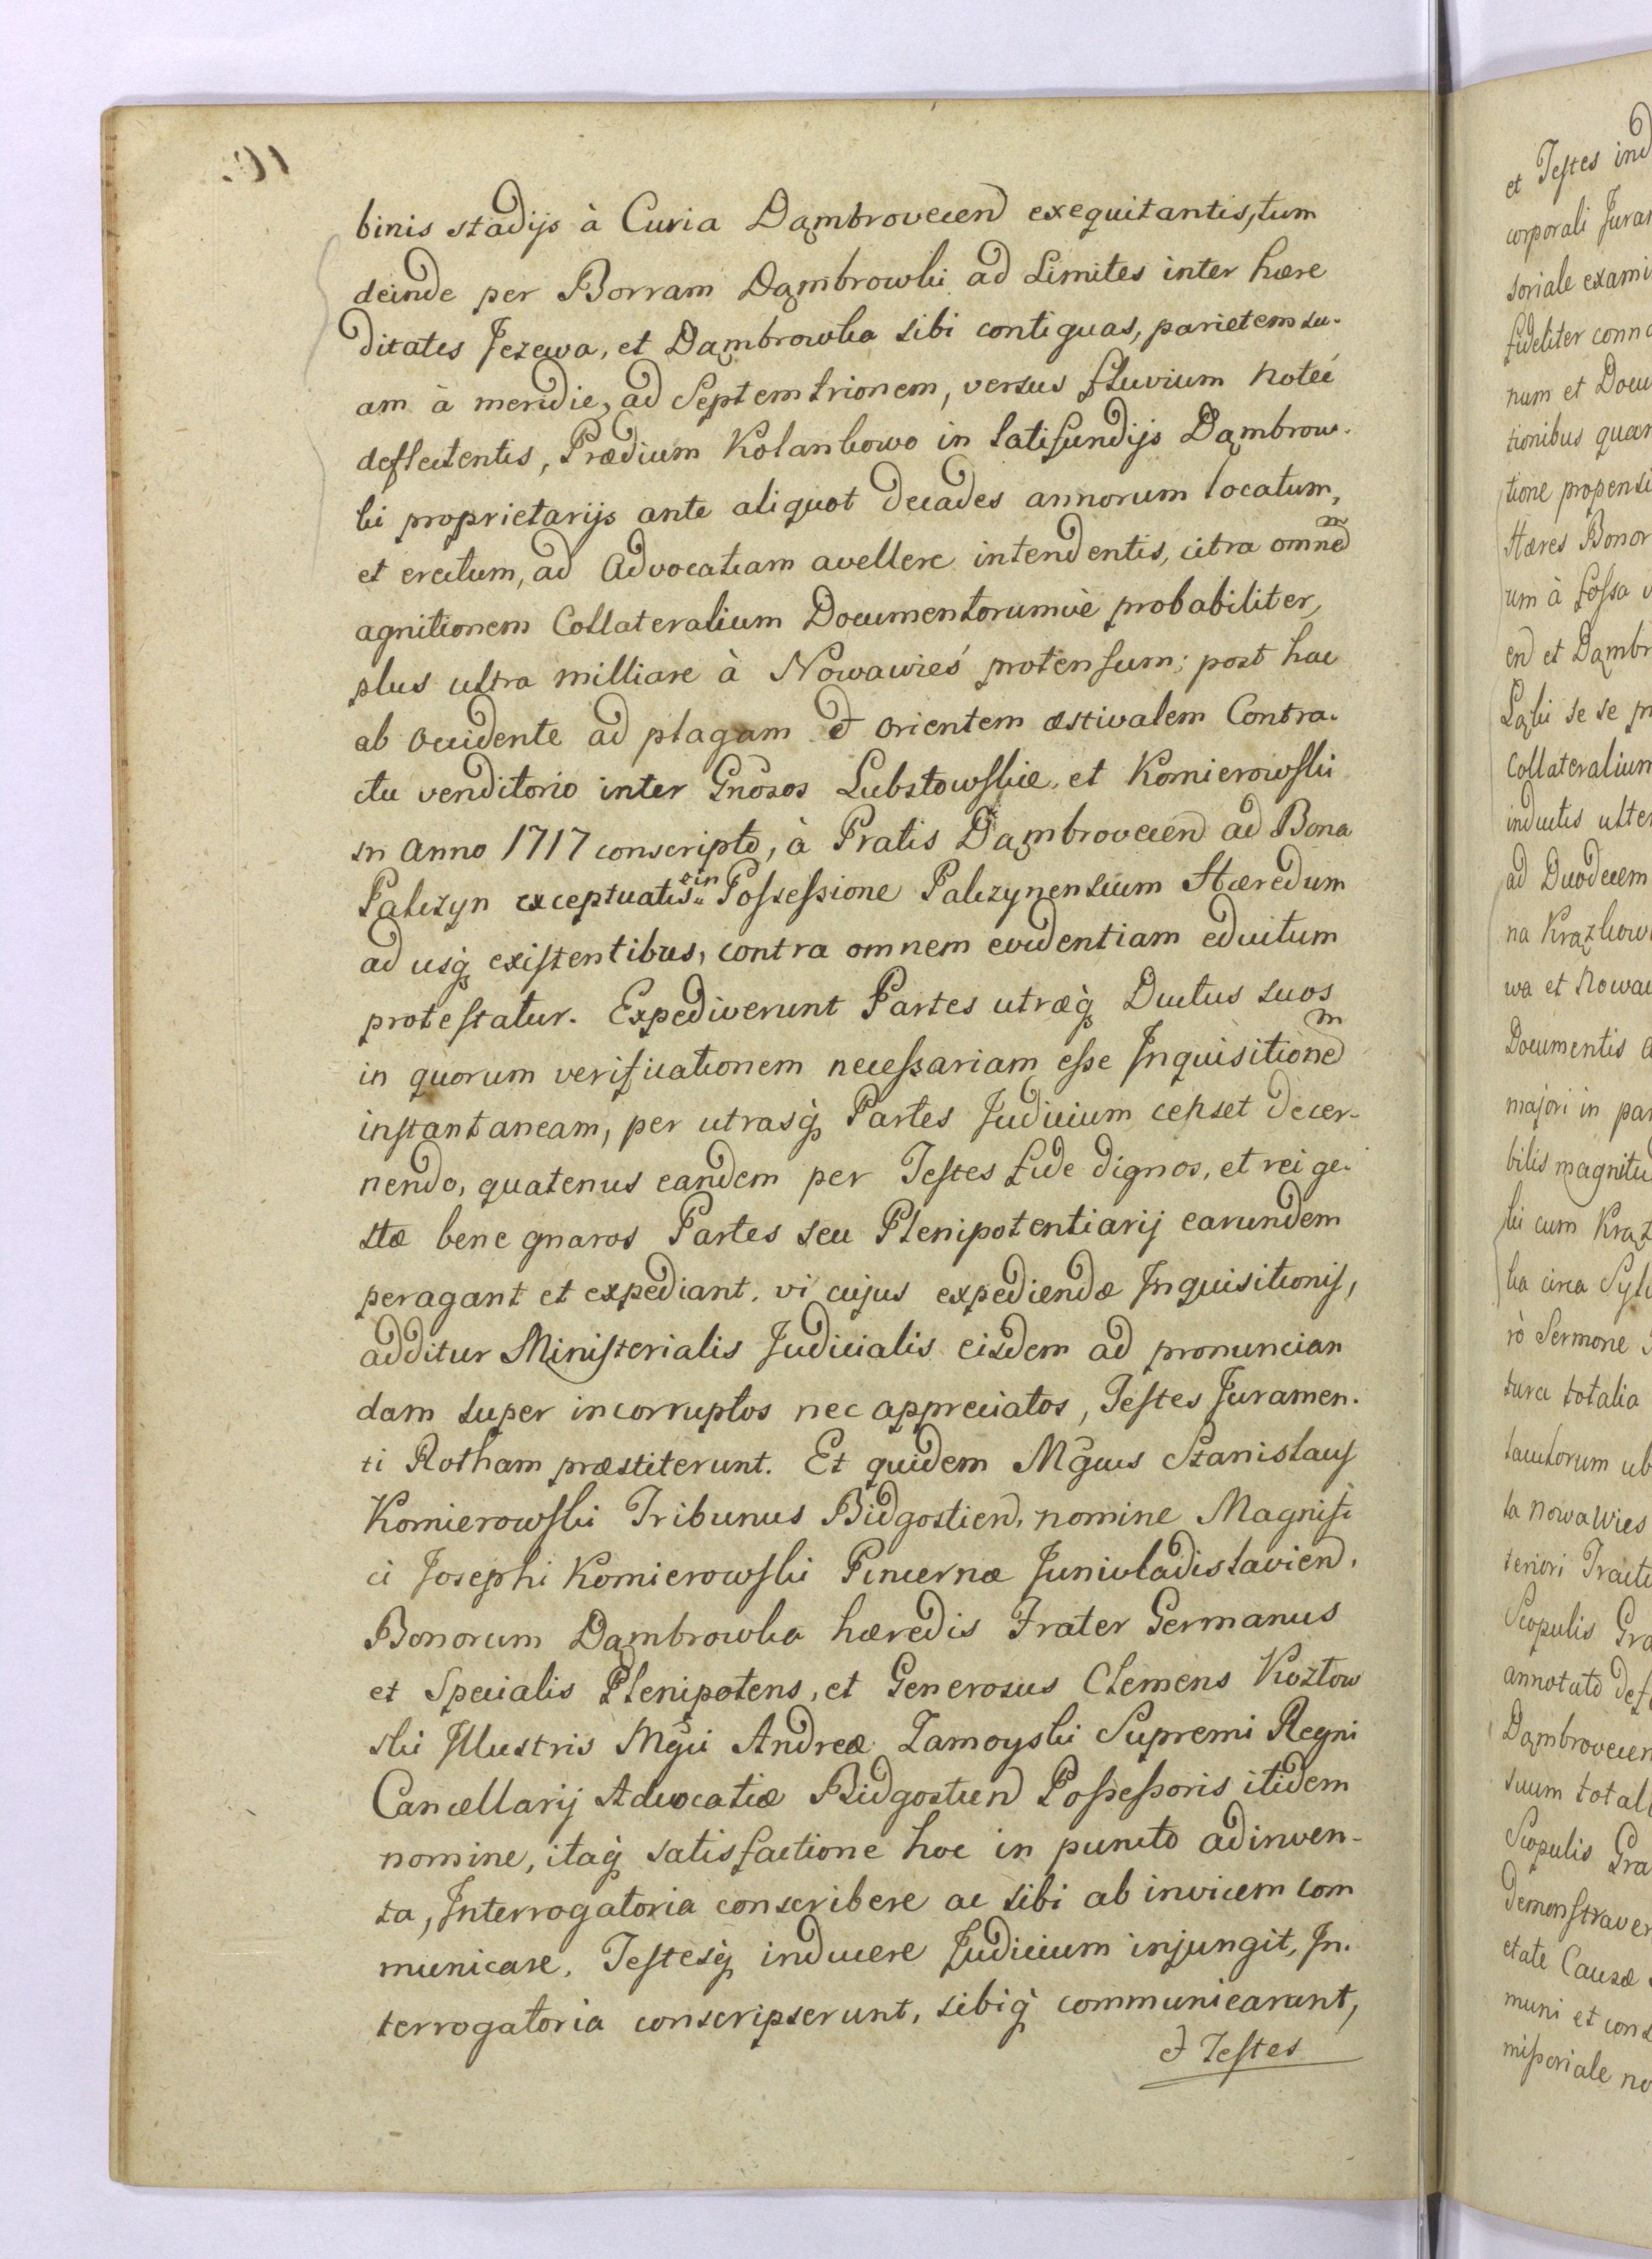 binis stadijs à Curia Dąmbrovecen̄ exequitantis, tum
deinde per Borram Dąmbrowki ad Limites inter hære
ditates Jezewa, et Dąmbrowka sibi contiguas, parietem su-
am à meridie, ad Septemtrionem, versus fluvium Noteć
deflectentis, Prædium Kolankowo in latifundijs Dąmbrow-
ki proprietarijs ante aliquot decades annorum locatum,
et erectum, ad Advocatiam avellere intendentis, citra omnem
agnitionem Collateralium Documentorumvè probabiliter,
plus ultra milliare à Nowawieś protensum; post hac
ab occidente ad plagam et orientem æstivalem Contra-
ctu venditorio inter Gnosos Lubstowskie, et Komierowski
in Anno 1717 conscripto, à Pratis Dąmbrovecen̄ ad Bona
Palczyn exceptuatis in Possessione Palczynensium Hæredum
ad usq́ existentibus, contra omnem evidentiam eductum
protestatur. Expediverunt Partes utræq́ Ductus suos
in quorum verificationem necessariam esse Inquisitionem
instantaneam, per utrasq́ Partes Judicium censet decer-
nendo, quatenus eandem per Testes fide dignos, et rei ge-
stæ bene gnaros Partes seu Plenipotentiarij earundem
peragant et expediant. vi cujus expediendæ Inquisitionis,
additur Ministerialis Judicialis eisdem ad pronuncian
dam super incorruptos nec appreciatos, Testes Juramen-
ti Rotham præstiterunt. Et quidem Mgcus Stanislaus
Komierowski Tribunus Bidgostien̄, nomine Magnifi
ci Josephi Komierowski Pincernæ Junivladislavien̄.
Bonorum Dąmbrowka hæredis Frater Germanus
et Specialis Plenipotens, et Generosus Clemens Kozłow
ski Illustris Mgci Andreæ Zamoyski Supremi Regni
Cancellarij Advocatiæ Bidgostien̄ Possessoris itidem
nomine, itaq́ satisfactione hoc in puncto adinven-
ta, Interrogatoria conscribere ac sibi ab invicem com
municare, Testesq́ inducere Judicium injungit, In-
terrogatoria conscripserunt, sibiq́ communicarunt,
et Testes
et Testes ind
corporali Jura
soriale exami
fideliter conno
num et Docu
tionibus quar
tione propensi
Hæres Bonor
um à fossa
en̄ et Dąmbr
Ląki se se pr
Collateralium
inductis ulter
ad Duodecem
na Krązkow
wa et Nowa
Documentis a
majori in par
bilis magnitud
ki cum Krąz
ka circa Sylv
rò Sermone
tura totalia
ta Nowawies
teriori Tractu
Scopulis Gra
annotato def
Dąmbrovecen
suum total
Scopulis Gra
demonstraver
etate Causæ
muni et cons
missoriale no